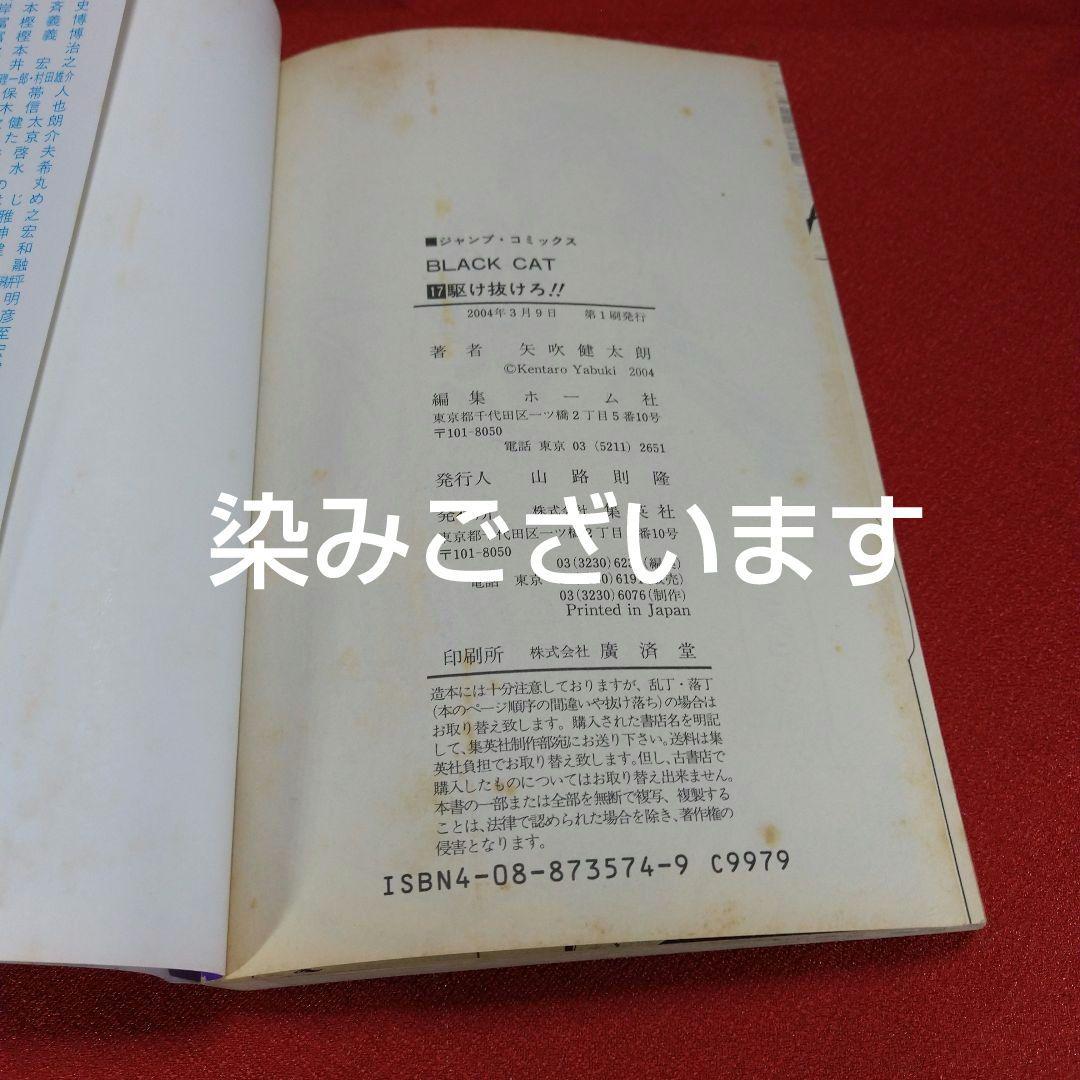 岸本斉史
冨樫義博
冨樫義博
本治
井宏之
一郎・村田雄介
保帯人
木信也
健太朗
た京介
啓夫
水希
の丸
はじめ
雅之
伸宏
健和
融
明
彦
至
■ジャンプ・コミックス
BLACK CAT
17駆け抜けろ!!
2004年3月9日 第1刷発行
著者 矢吹健太朗
©Kentaro Yabuki 2004
編集 ホーム社
東京都千代田区一ツ橋2丁目5番10号
〒101-8050
電話 東京 03 (5211) 2651
発行人 山路則隆
発行所 株式会社 集英社
東京都千代田区一ツ橋2丁目5番10号
〒101-8050
03(3230)623 (編集)
電話 東京 0)619 (販売)
03(3230)6076(制作)
Printed in Japan
染みございます
印刷所 株式会社 廣済堂
造本には十分注意しておりますが、乱丁・落丁
(本のページ順序の間違いや抜け落ち)の場合は
お取り替え致します。購入された書店名を明記
して、集英社制作部宛にお送り下さい。送料は集
英社負担でお取り替え致します。但し、古書店で
購入したものについてはお取り替え出来ません。
本書の一部または全部を無断で複写、複製する
ことは、法律で認められた場合を除き、著作権の
侵害となります。
ISBN4-08-873574-9 C9979